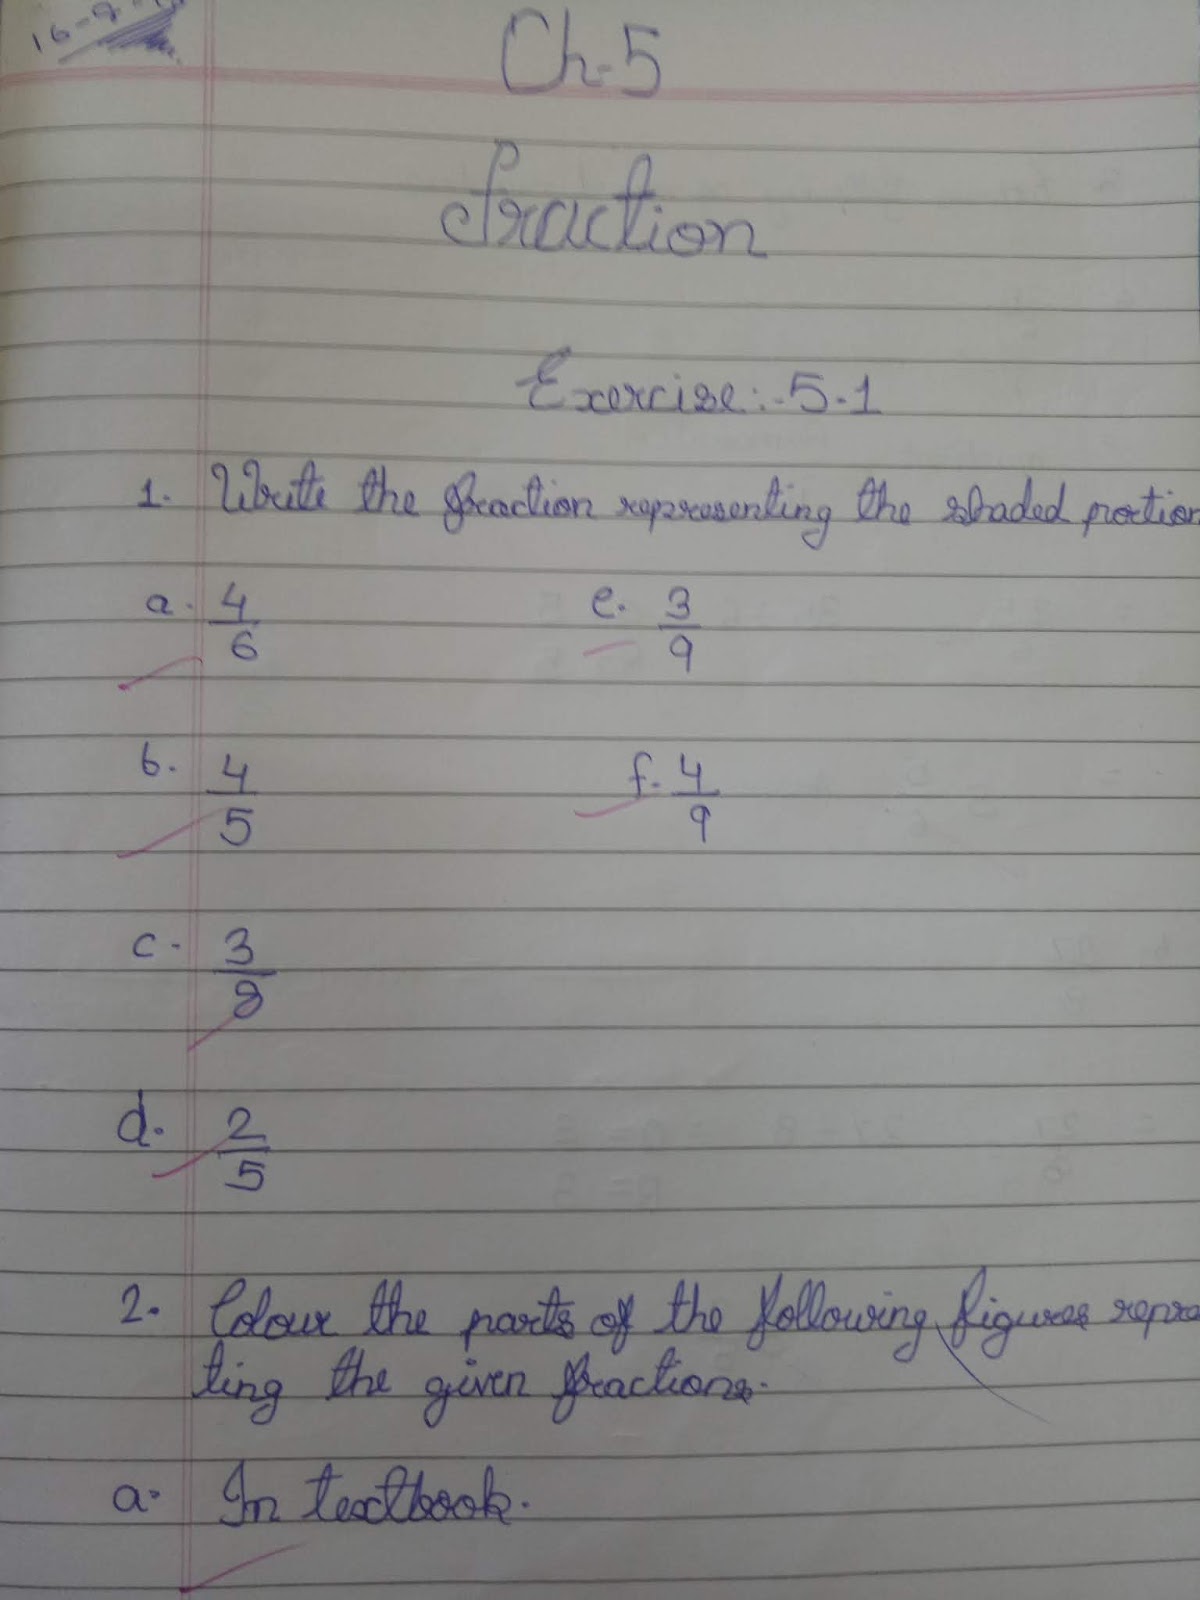 Ch-5
Fraction
Exercise:-5.1
1. Write the fraction representing the shaded portion
a. 4/6 e. 3/9
b. 4/5 f. 4/9
c. 3/8
d. 2/5
2. Colour the parts of the following figures repre
ting the given fractions.
a. In textbook.